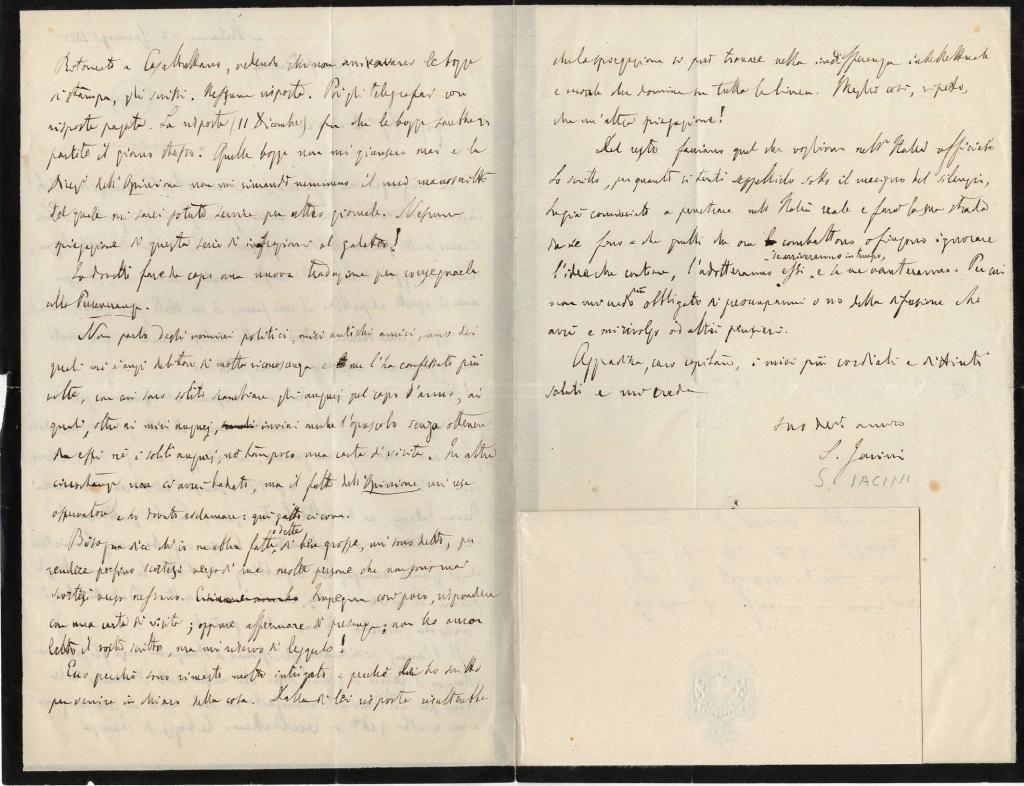 Ritornato a Casalbuttano, vedendo che non arrivavano le bozze
di stampa, gli scrissi. Nessuna risposta. Poi gli telegrafai con
risposta pagata. La risposta (11 Dicembre) fu che le bozze sarebbero
partite il giorno stesso. Quelle bozze non mi giunsero mai e la
Direz. dell'Opinione non mi rimandò nemmeno il mio manoscritto
del quale mi sarei potuto servire per altro giornale. Nessuna
spiegazione di questa serie di infrazioni al galateo!
Io dovetti fare da capo una nuova traduzione per consegnarla
alla Perseveranza.
Non parlo degli uomini politici, miei antichi amici, uno dei
quali mi è anzi debitore di molta riconoscenza e me l'ha confessato più
volte, con cui sono solito scambiare gli augurj pel capo d'anno, ai
quali, oltre ai miei augurj, inviai anche l'opuscolo senza ottenere
da essi nè i soliti augurj, nè tampoco una carta di visita. In altre
circostanze non ci avrei badato, ma il fatto dell'Opinione mi rese
osservatore e ho dovuto esclamare: qui gatto ci cova.
Bisogna dire ch'io ne abbia fatte, o dette di ben grosse, mi sono detto, per
rendere perfino scortesi verso di me molte persone che non sono mai
scortesi verso nessuno. Impegna così poco, rispondere
con una carta di visita; oppure affermare di presenza: non ho ancor
letto il vostro scritto, ma mi riservo di leggerlo!
Ecco perchè sono rimasto molto intrigato e perchè Le ho scritto
per venire in chiaro della cosa. Dalla di Lei risposta risulterebbe
che la spiegazione si può trovare nella indifferenza intellettuale
e morale che domina su tutta la linea. Meglio così, ripeto,
che un'altra spiegazione!
Del resto facciano quel che vogliono nell'Italia ufficiale
lo scritto, per quanto si tenti seppellirlo sotto il macigno del silenzio,
ha già cominciato a penetrare nell'Italia reale e farà la sua strada
da se forse e da quelli che ora lo combattono o fingono ignorare
l'idea che contiene, l'adotteranno essi, se arriveranno in tempo, e se ne vanteranno. Per cui
non mi credo più obbligato di preoccuparmi o no della diffusione che
avrà e mi rivolgo ad altri pensieri.
Aggradisca, caro capitano, i miei più cordiali e distinti
saluti e mi creda
suo dev. amico
S. Jacini
S. IACINI